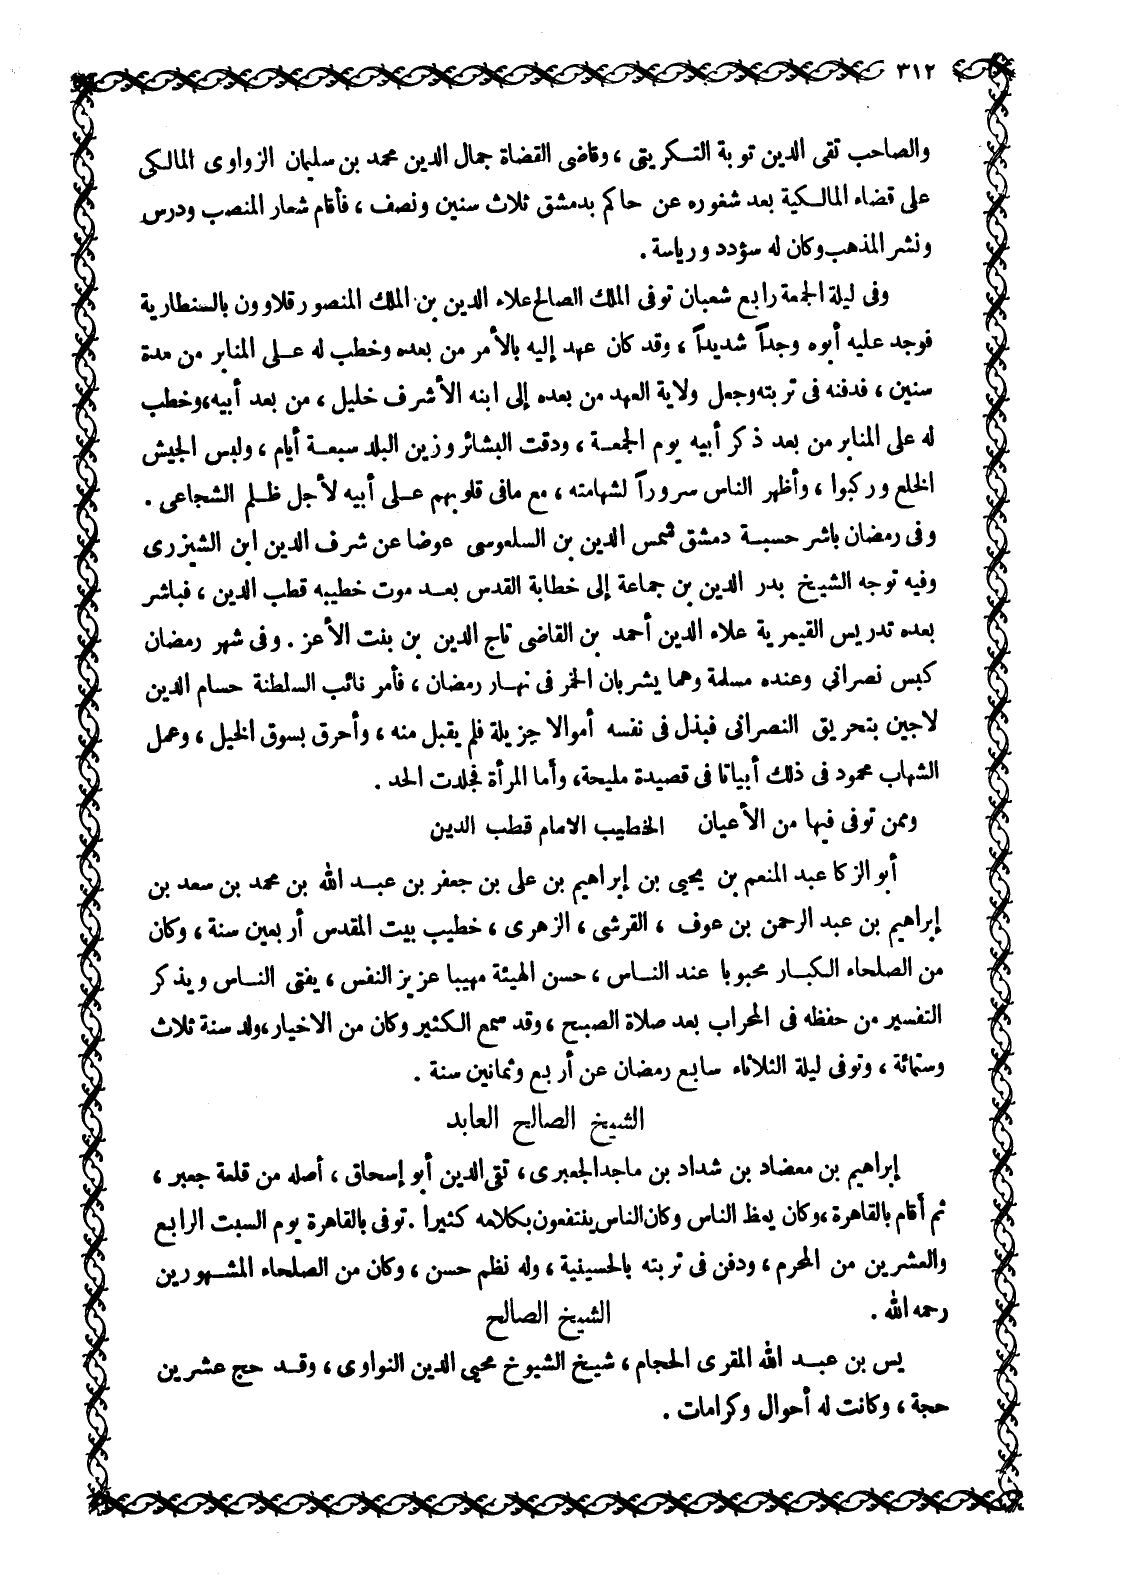 ٣١٢
والصاحب تقى الدين توبة التكريتى ، وقاضى القضاة جمال الدين محمد بن سليمان الزواوى المالكى
على قضاء المالكية بعد شغوره عن حاكم بدمشق ثلاث سنين ونصف ، فأقام شعار المنصب ودرس
ونشر المذهب وكان له سؤدد ورياسة .
وفى ليلة الجمعة رابع شعبان توفى الملك الصالح علاء الدين بن الملك المنصور قلاوون بالسنطارية
فوجد عليه أبوه وجداً شديداً ، وقد كان عهد إليه بالأمر من بعده وخطب له على المنابر من مدة
سنين ، فدفنه فى تربته وجعل ولاية العهد من بعده إلى ابنه الأشرف خليل ، من بعد أبيه ، وخطب
له على المنابر من بعد ذكر أبيه يوم الجمعة ، ودقت البشائر وزين البلد سبعة أيام ، ولبس الجيش
الخلع وركبوا ، وأظهر الناس سروراً لشهامته ، مع مافى قلوبهم على أبيه لأجل ظلم الشجاعى .
وفى رمضان باشر حسبة دمشق شمس الدين بن السلعوسى عوضا عن شرف الدين ابن الشيزرى
وفيه توجه الشيخ بدر الدين بن جماعة إلى خطابة القدس بعد موت خطيبه قطب الدين ، فباشر
بعده تدريس القيمرية علاء الدين أحمد بن القاضى تاج الدين بن بنت الأعز . وفى شهر رمضان
كبس نصرانى وعنده مسلمة وهما يشربان الخمر فى نهار رمضان ، فأمر نائب السلطنة حسام الدين
لاجين بتحريق النصرانى فبذل فى نفسه أموالا جزيلة فلم يقبل منه ، وأحرق بسوق الخيل ، وعمل
الشهاب محمود فى ذلك أبياتا فى قصيدة مليحة، وأما المرأة فجلدت الحد .
وممن توفى فيها من الأعيان الخطيب الامام قطب الدين
أبو الزكا عبد المنعم بن يحيى بن إبراهيم بن على بن جعفر بن عبد الله بن محمد بن سعد بن
إبراهيم بن عبد الرحمن بن عوف ، القرشى ، الزهرى ، خطيب بيت المقدس أربعين سنة ، وكان
من الصلحاء الكبار محبوبا عند الناس ، حسن الهيئة مهيبا عزيز النفس ، يفتى الناس ويذكر
التفسير من حفظه فى المحراب بعد صلاة الصبح ، وقد سمع الكثير وكان من الاخيار ، ولد سنة ثلاث
وستمائة ، وتوفى ليلة الثلاثاء سابع رمضان عن أربع وثمانين سنة .
الشيخ الصالح العابد
إبراهيم بن معضاد بن شداد بن ماجد الجعبرى ، تقى الدين أبو إسحاق ، أصله من قلعة جعبر ،
ثم أقام بالقاهرة ، وكان يعظ الناس وكان الناس ينتفعون بكلامه كثيرا . توفى بالقاهرة يوم السبت الرابع
والعشرين من المحرم ، ودفن فى تربته بالحسينية ، وله نظم حسن ، وكان من الصلحاء المشهورين
رحمه الله .
الشيخ الصالح
يس بن عبد الله المقرى الحجام ، شيخ الشيوخ محيى الدين النواوى ، وقد حج عشرين
حجة ، وكانت له أحوال وكرامات .